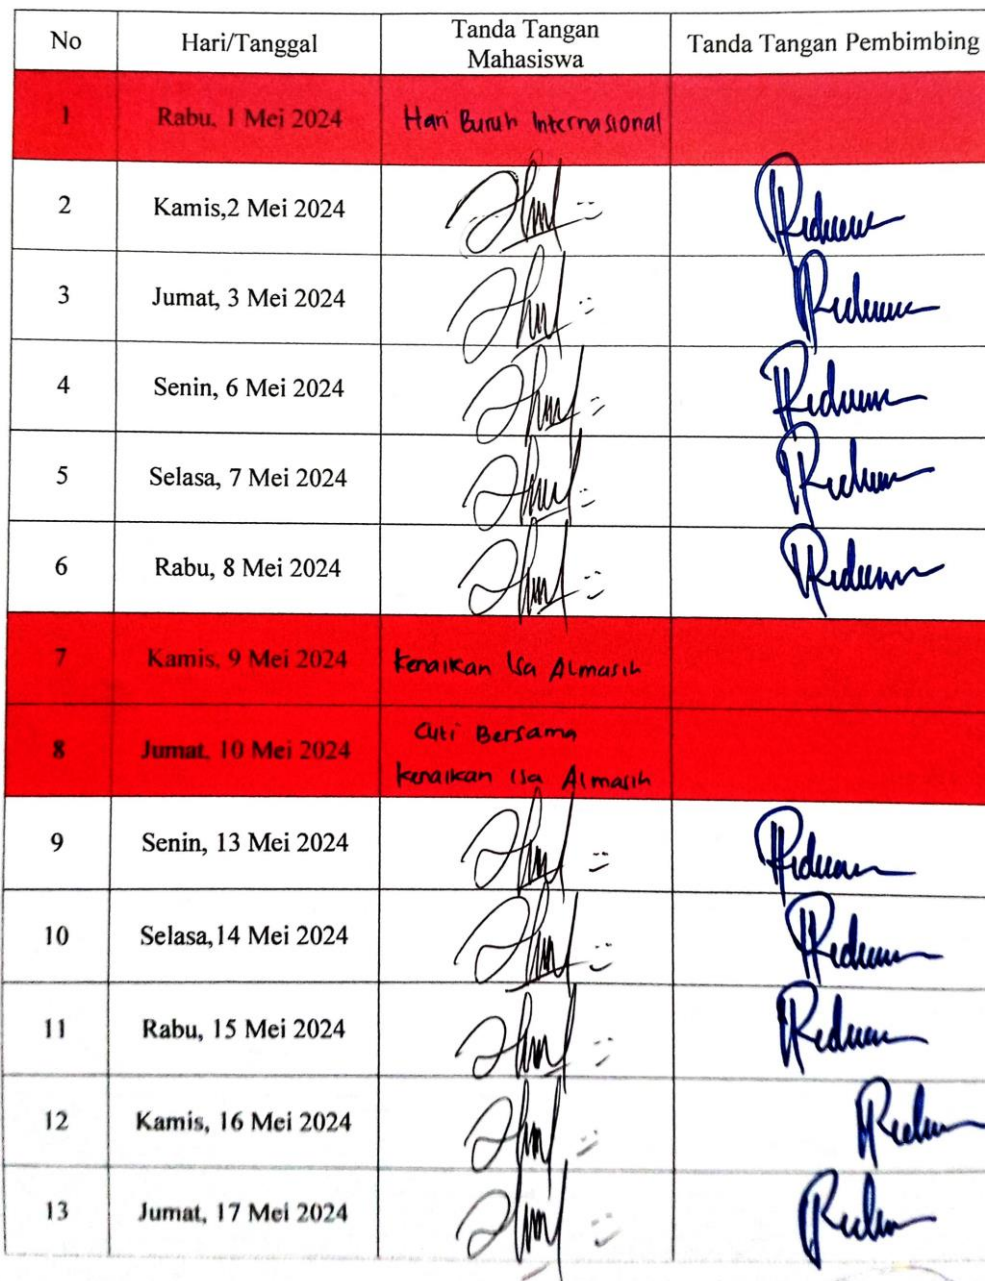 No Hari/Tanggal Tanda Tangan Mahasiswa Tanda Tangan Pembimbing
1 Rabu, 1 Mei 2024 Hari Buruh Internasional
2 Kamis,2 Mei 2024
3 Jumat, 3 Mei 2024
4 Senin, 6 Mei 2024
5 Selasa, 7 Mei 2024
6 Rabu, 8 Mei 2024
7 Kamis, 9 Mei 2024 Kenaikan Isa Almasih
8 Jumat, 10 Mei 2024 Cuti Bersama
Kenaikan Isa Almasih
9 Senin, 13 Mei 2024
10 Selasa,14 Mei 2024
11 Rabu, 15 Mei 2024
12 Kamis, 16 Mei 2024
13 Jumat, 17 Mei 2024